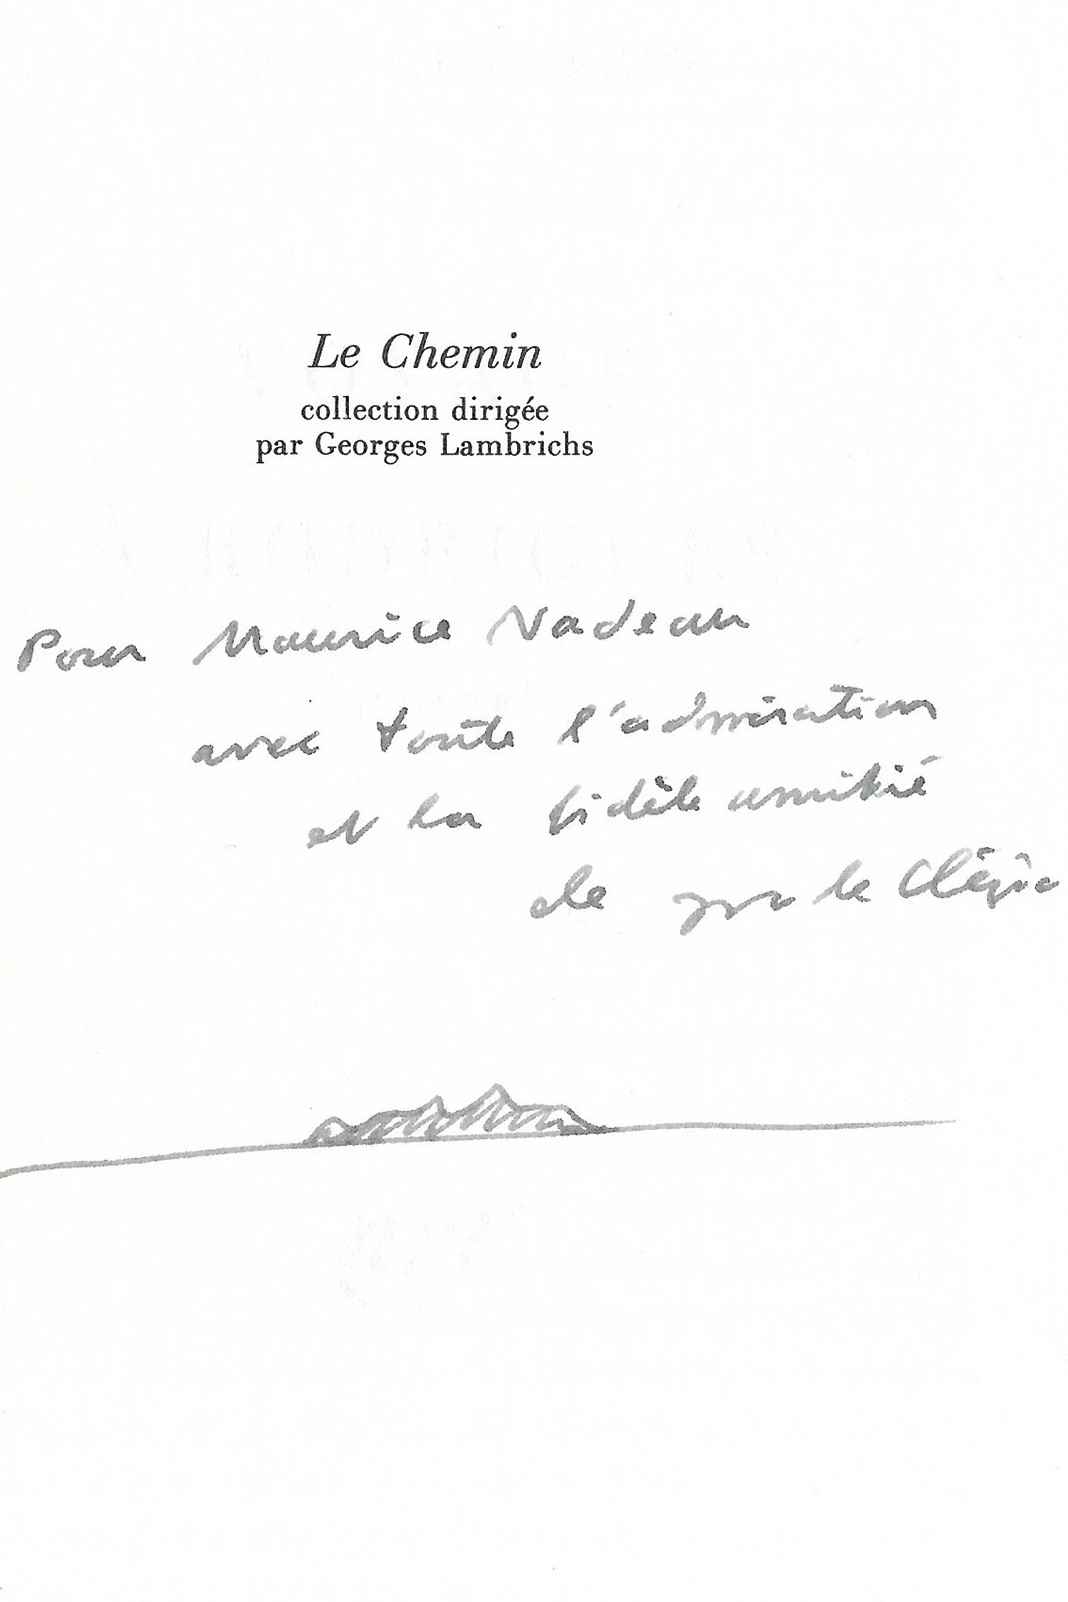 Le Chemin
collection dirigée
par Georges Lambrichs
À RODRIGUES
Pour Maurice Nadeau
avec toute l'admiration
et la fidèle amitié
de jmg le Clézio